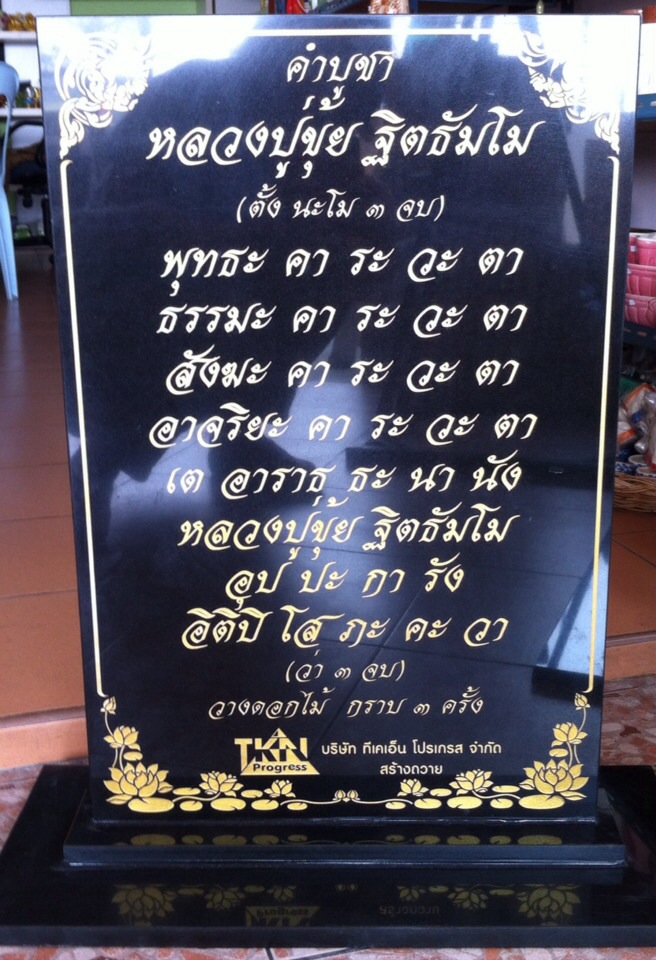 คำบูชา
หลวงปู่ขุ้ย ฐิตธัมโม
(ตั้ง นะโม ๓ จบ)
พุทธะ คา ระ วะ ตา
ธรรมะ คา ระ วะ ตา
สังฆะ คา ระ วะ ตา
อาจริยะ คา ระ วะ ตา
เต อาราธฺ ธะ นา นัง
หลวงปู่ขุ้ย ฐิตธัมโม
อุป ปะ กา รัง
อิติปิ โส ภะ คะ วา
(ว่า ๓ จบ)
วางดอกไม้ กราบ ๓ ครั้ง
TKN Progress บริษัท ทีเคเอ็น โปรเกรส จำกัด
สร้างถวาย